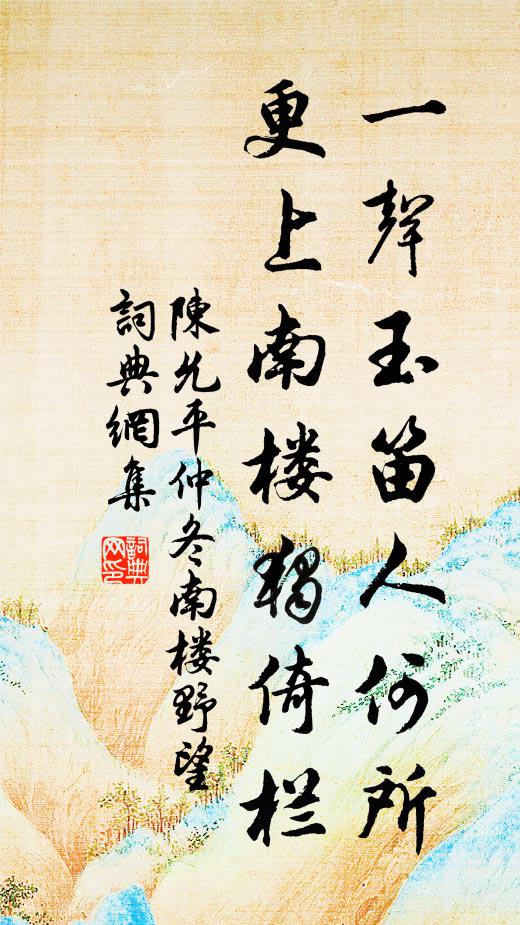 一聲玉笛人何所
更上南楼独倚栏
陳允平仲冬南楼野望
詞典網集
詞典
网印